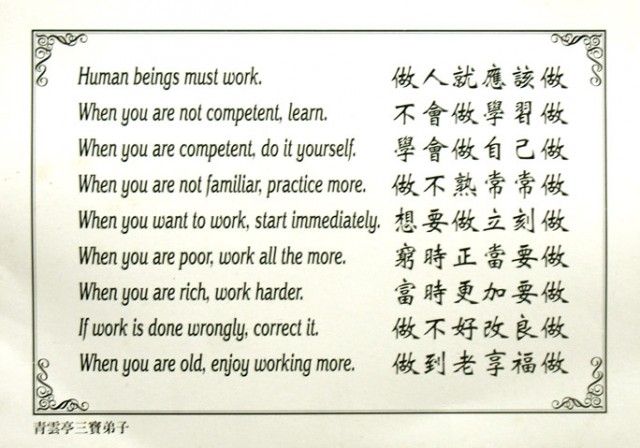 Human beings must work. 做人就應該做
When you are not competent, learn. 不會做學習做
When you are competent, do it yourself. 學會做自己做
When you are not familiar, practice more. 做不熟常常做
When you want to work, start immediately. 想要做立刻做
When you are poor, work all the more. 窮時正當要做
When you are rich, work harder. 富時更加要做
If work is done wrongly, correct it. 做不好改良做
When you are old, enjoy working more. 做到老享福做
青雲亭三寶弟子